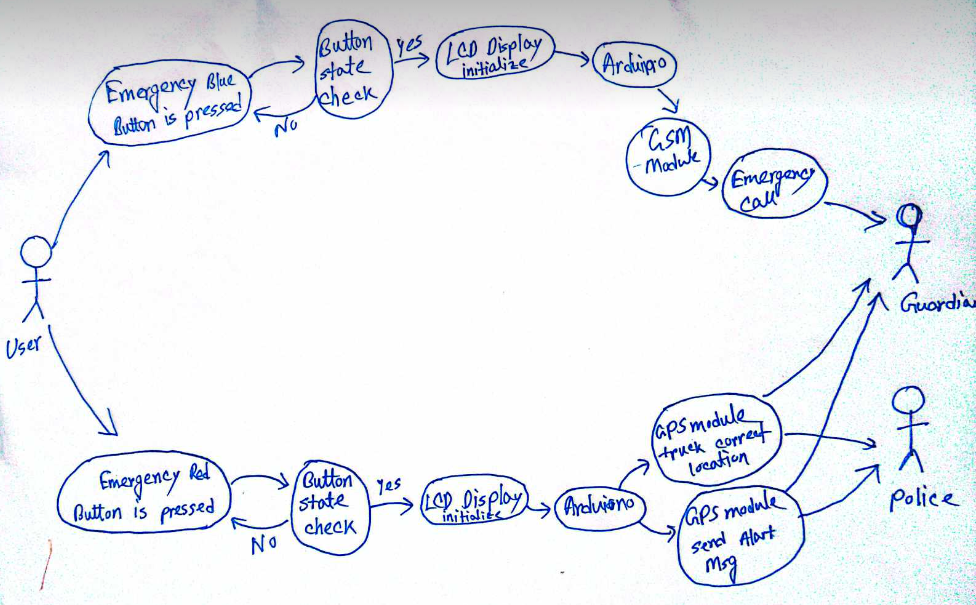 Emergency Blue
Button is pressed
Button
state
check
Yes
No
LCD Display
initialize
Arduino
GSM
-Module
Emergency
call
Guardian
User
Emergency Red
Button is pressed
Button
state
check
Yes
No
LCD Display
initialize
Arduino
GPS module
truck correct
location
GPS module
send Alart
Msg
Police